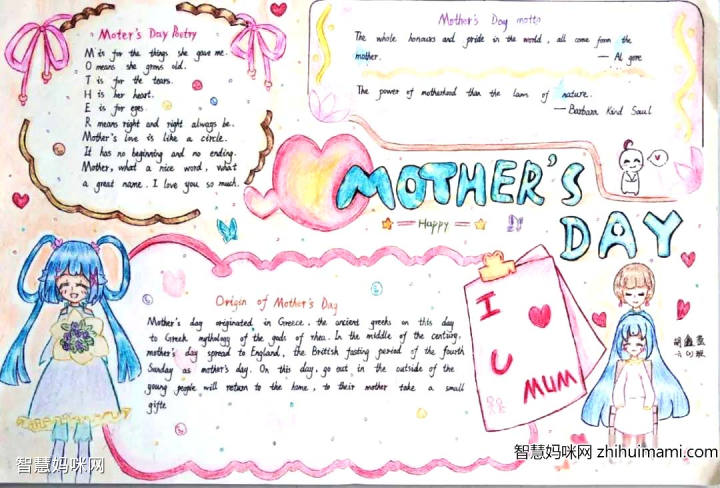 Moter's Day Poetry
M is for the things she gave me.
O means she grows old.
T is for the tears.
H is her heart.
E is for eyes.
R means right and right always be.
Mother's love is like a circle.
It has no beginning and no ending.
Mother, what a nice word, what
a great name. I love you so much.
Mother's Day motto
The whole honours and pride in the world, all come from the
mother.
— Al gore
The power of motherhood than the laws of nature.
— Barbara Kind Saul
MOTHER'S
Happy
DAY
Origin of Mother's Day
Mother's day originated in Greece, the ancient greeks on this day
to Greek mythology of the gods of rhea. In the middle of the century,
mother's day spread to England, the British fasting period of the fourth
Sunday as mother's day. On this day, go out in the outside of the
young people will return to the home, to their mother take a small
gifte
I
U
MUM
智慧妈咪网
智慧妈咪网 zhihuimami.com